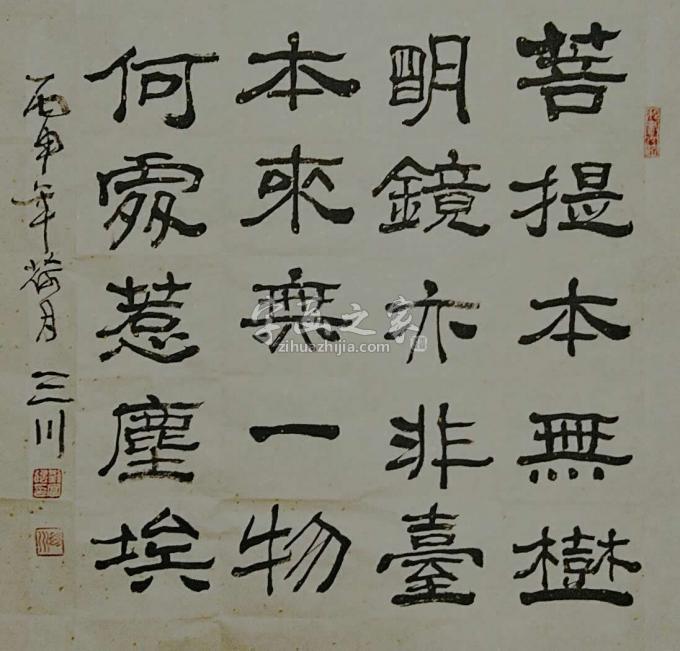 菩提本無樹
明鏡亦非臺
本來無一物
何處惹塵埃
丙申年荷月三川
字画之家
zihuazhijia.com